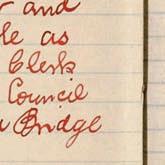 and
as
Clerk
Council
Bridge